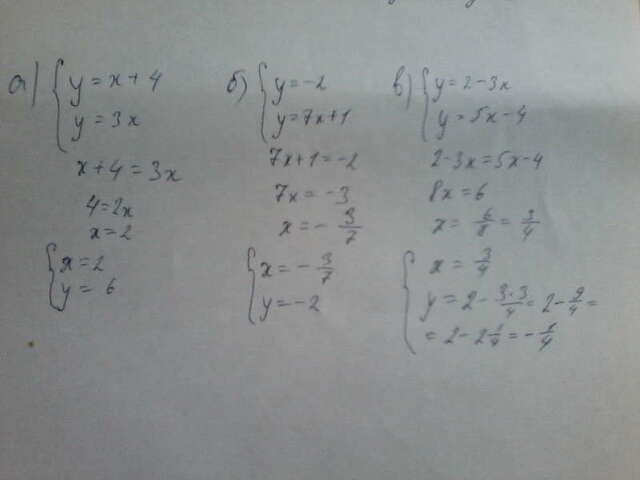 а) { y = x + 4
y = 3x
x + 4 = 3x
4 = 2x
x = 2
{ x = 2
y = 6
б) { y = -2
y = 7x + 1
7x + 1 = -2
7x = -3
x = - 3/7
{ x = - 3/7
y = -2
в) { y = 2 - 3x
y = 5x - 4
2 - 3x = 5x - 4
8x = 6
x = 6/8 = 3/4
{ x = 3/4
y = 2 - 3·3/4 = 2 - 9/4 =
= 2 - 2 1/4 = - 1/4